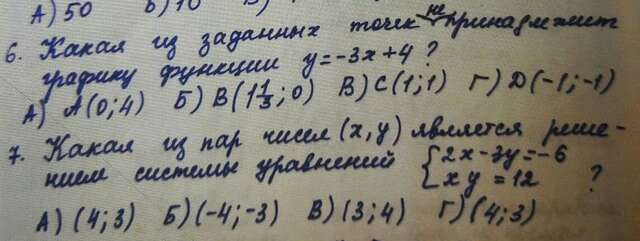 А) 50 Б) 10 В)
6. Какая из заданных точек не принадлежит
графику функции y=-3x+4?
А) A(0;4) Б) B(1 1/3;0) В) C(1;1) Г) D(-1;-1)
7. Какая из пар чисел (x,y) является реше-
нием системы уравнений {2x-3y=-6
{xy=12 ?
А) (4;3) Б) (-4;-3) В) (3;4) Г) (4;3)